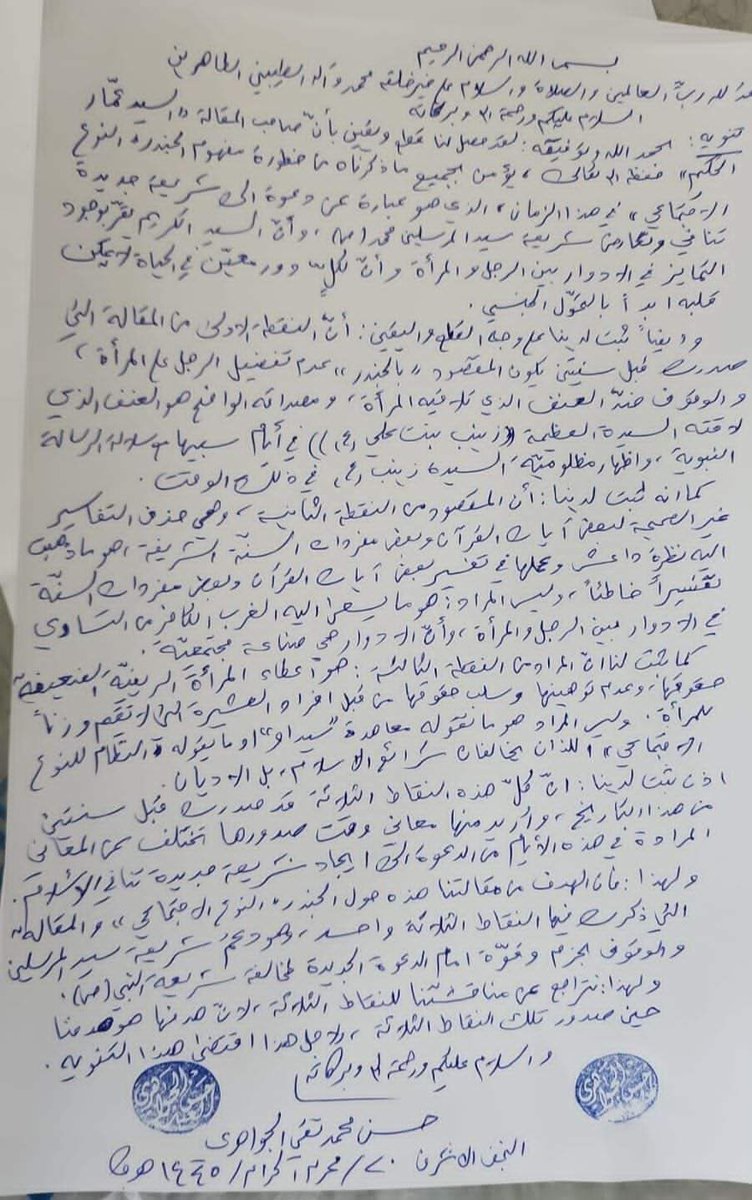 بسم الله الرحمن الرحيم
لله ربّ العالمين والصلاة والسلام على خير خلقه محمد وآله الطيبين الطاهرين
السلام عليكم ورحمة الله وبركاته
تنويه: الحمد لله وتوفيقه: لقد حصل لنا قطع ويقين بأنّ صاحب المقالة «السيد عمّار
الحكيم» حفظه الله تعالى، يؤمن بجميع ما ذكرناه من خطورة مفهوم الجندر «النوع
الاجتماعي» في هذا الزمان، الذي هو عبارة عن دعوة الى شريعة جديدة
تنافي وتعارض شريعة سيد المرسلين محمد (ص)، وأنّ السيد الكريم يقرّ بوجود
التمايز في الادوار بين الرجل والمرأة وأنّ لكلٍّ دور معيّن في الحياة لا يمكن
قلبه ابداً بالتحوّل الجنسي.
وايضاً ثبت لدينا على وجه القطع واليقين: أنّ النقطة الاولى من المقالة التي
صدرت قبل سنتين يكون المقصود «بالجندر» عدم تفضيل الرجل على المرأة،
والوقوف ضدّ العنف الذي تلاقيه المرأة، ومصداقه الواضح هو العنف الذي
لاقته السيدة العظيمة ((زينب بنت علي (ع))) في أيام سبيها من سلالة الرسالة
النبوية، واظهار مظلوميّة السيدة زينب (ع) في ذلك الوقت.
كما انه ثبت لدينا: أن المقصود من النقطة الثانية، وهي حذف التفاسير
غير الصحيحة لبعض آيات القرآن وبعض مفردات السنّة الشريفة، هو ما ذهب
اليه نظرة داعش وعملها في تفسير بعض آيات القرآن وبعض مفردات السنّة
تفسيراً خاطئاً، وليس المراد: هو ما يسعى اليه الغرب الكافر من التساوي
في الادوار بين الرجل والمرأة، وأنّ الادوار هي صناعة مجتمعيّة.
كما ثبت لنا انّ المراد من النقطة الثالثة: هو اعطاء المرأة الريفيّة الضعيفة
حقوقها، وعدم توهينها وسلب حقوقها من قبل افراد العشيرة التي لا تقيم وزناً
للمرأة. وليس المراد هو ما تقوله معاهدة «سيداو» او ما يقوله النظام للنوع
الاجتماعي» اللذان يخالفان شرائع الاسلام، بل الاديان.
اذن ثبت لدينا: انّ كلّ هذه النقاط الثلاثة قد صدرت قبل سنتين
من هذا التاريخ، واريد منها معاني وقت صدورها تختلف عن المعاني
المرادة في هذه الأيام من الدعوة الى ايجاد شريعة جديدة تنافي الاسلام.
ولهذا: فان الهدف من مقالتنا هذه حول الجندر «النوع الاجتماعي» والمقالة
التي ذكرت فيها النقاط الثلاثة واحد، وهو دعم شريعة سيد المرسلين
والوقوف بحزم وقوّة امام الدعوة الجديدة لمخالفة شريعة النبي (ص).
ولهذا: نتراجع عن مناقشتنا للنقاط الثلاثة، لانّ هدفها هو هدفنا
حين صدور تلك النقاط الثلاثة، ولاجل هذا اقتضى هذا التنويه.
والسلام عليكم ورحمة الله وبركاته
حسن محمد تقي الجواهري
النجف الاشرف ٢٠/محرم الحرام/١٤٤٥هـ ق